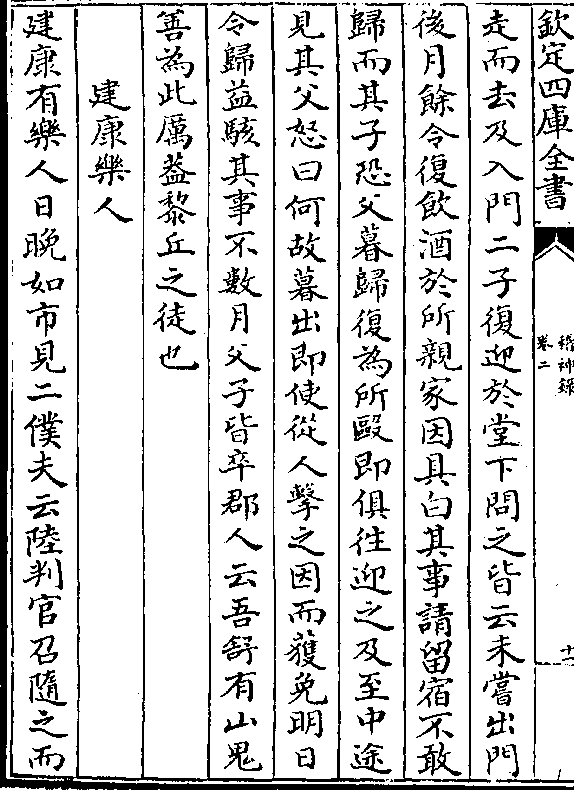 欽定四庫全書
稽神録
卷二
十一
走而去及入門二子復迎於堂下問之皆云未嘗出門
後月餘令復飲酒於所親家因具白其事請留宿不敢
歸而其子恐父暮歸復為所毆即俱往迎之及至中途
見其父怒曰何故暮出即使從人擊之因而獲免明日
令歸益駭其事不數月父子皆卒郡人云吾舒有山鬼
善為此厲葢黎丘之徒也
建康樂人
建康有樂人日晚如市見二僕夫云陸判官召隨之而